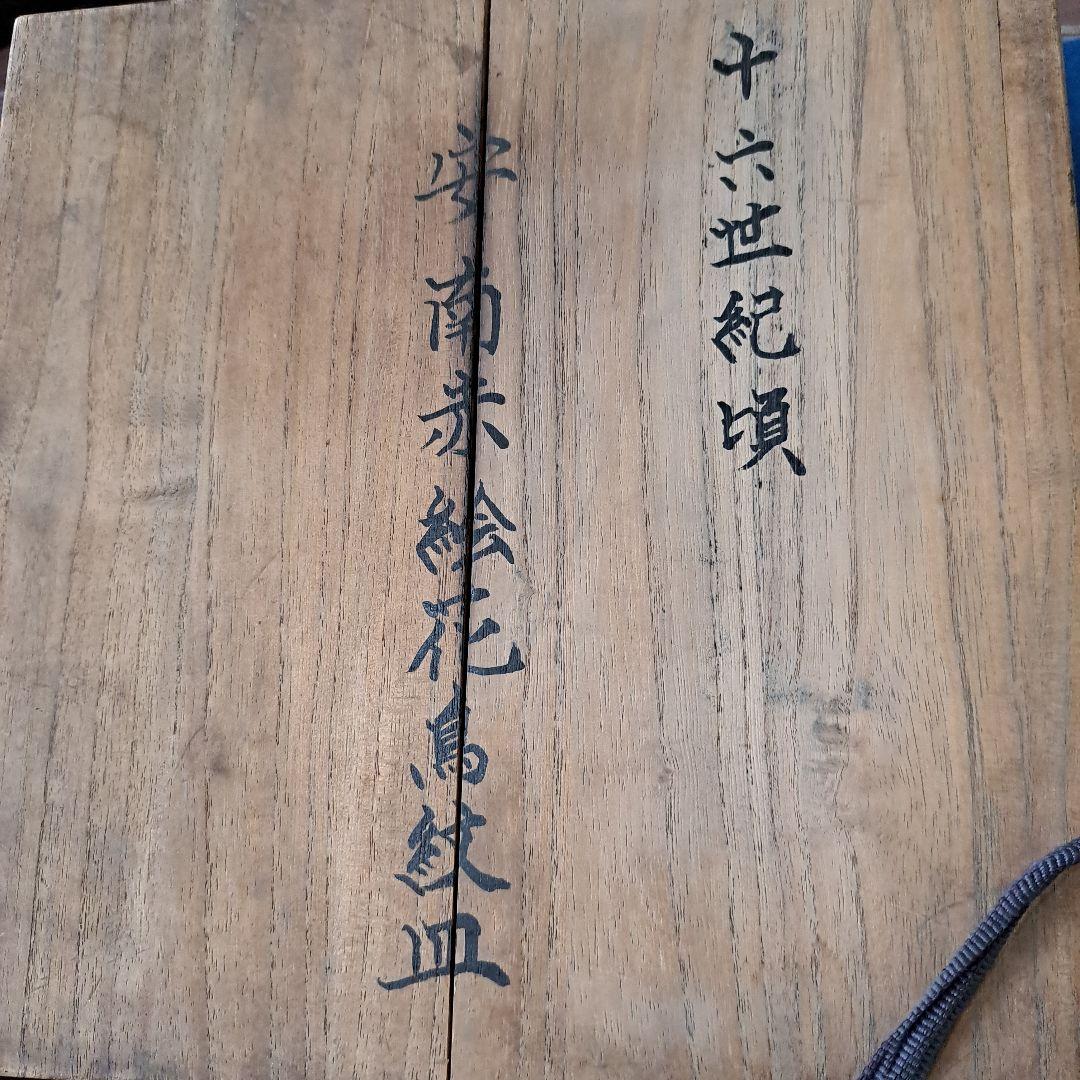 十六世紀頃
安南赤絵花鳥紋皿